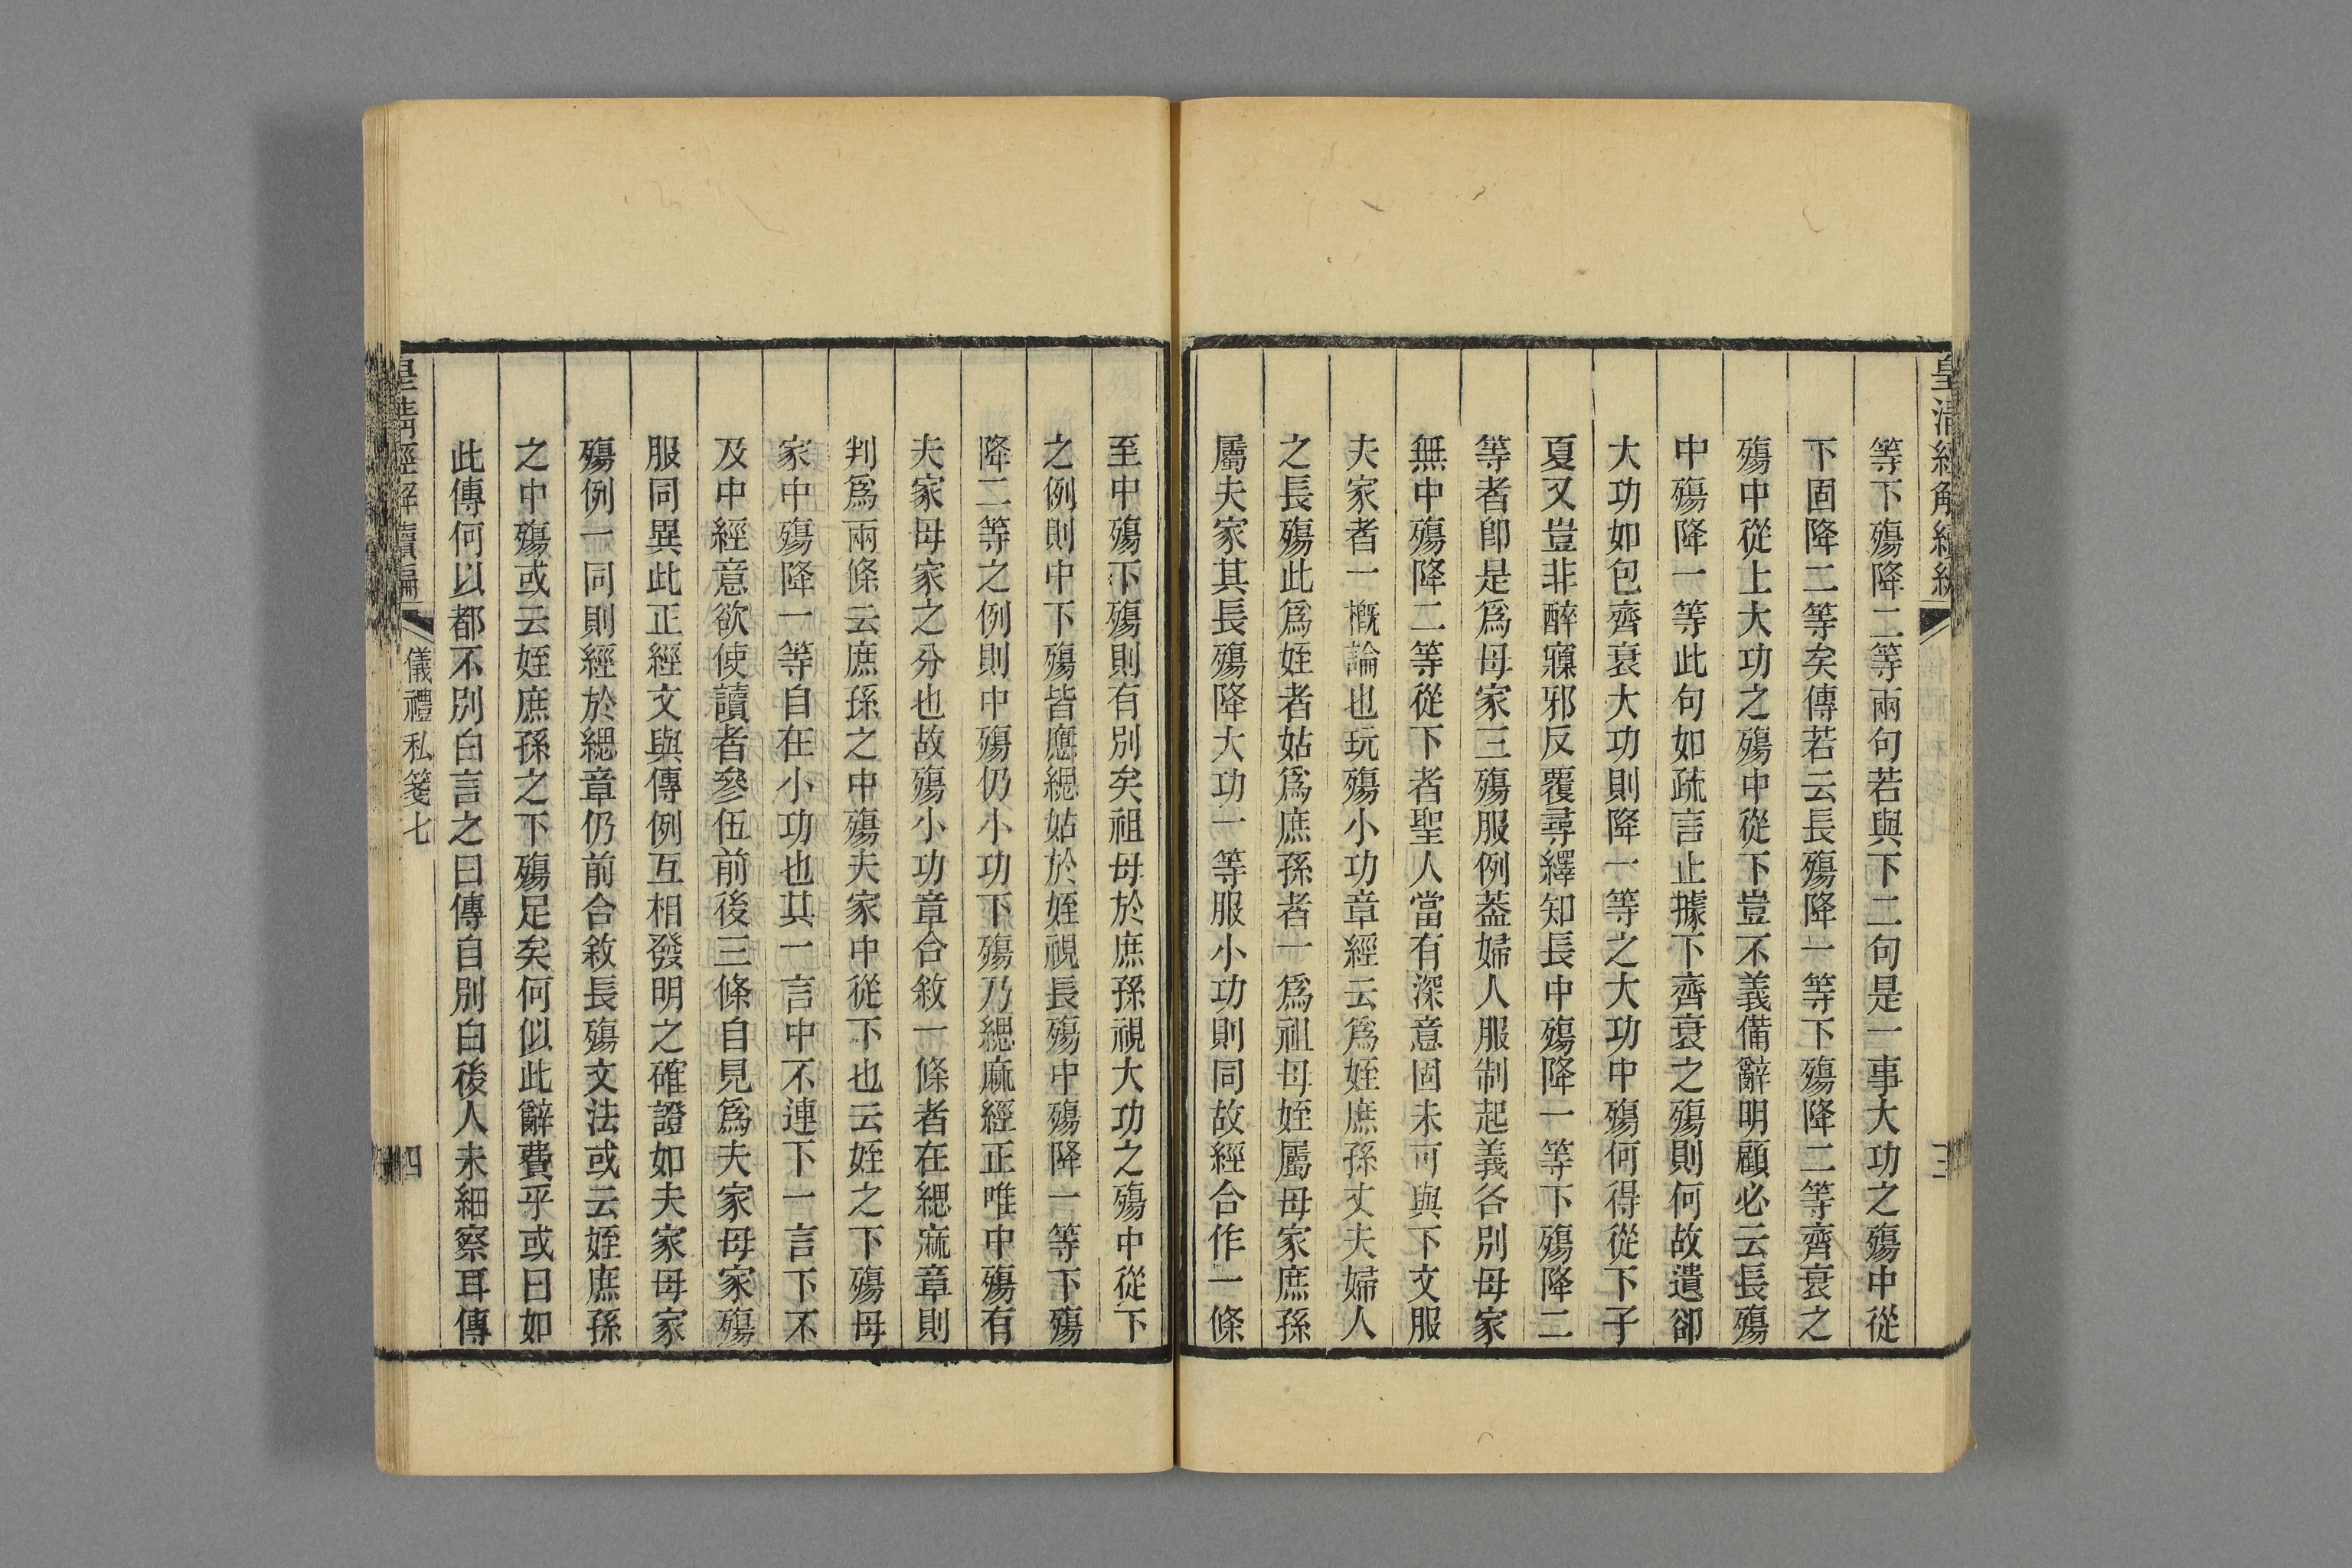 等下殤降二等兩句若與下二句是一事大功之殤中從
下固降二等矣傳若云長殤降一等下殤降二等齊衰之
殤中從上大功之殤中從下豈不義備辭明顧必云長殤
中殤降一等此句如疏言止據下齊衰之殤則何故遺卻
大功如包齊衰大功則降一等之大功中殤何得從下子
夏又豈非醉寱邪反覆尋繹知長中殤降一等下殤降二
等者卽是爲母家三殤服例葢婦人服制起義各別母家
無中殤降二等從下者聖人當有深意固未可與下文服
夫家者一槪論也玩殤小功章經云爲姪庶孫丈夫婦人
之長殤此爲姪者姑爲庶孫者一爲祖母姪屬母家庶孫
屬夫家其長殤降大功一等服小功則同故經合作一條
至中殤下殤則有別矣祖母於庶孫視大功之殤中從下
之例則中下殤皆應緦姑於姪視長殤中殤降一等下殤
降二等之例則中殤仍小功下殤乃緦麻經正唯中殤有
夫家母家之分也故殤小功章合敘一條者在緦麻章則
判爲兩條云庶孫之中殤夫家中從下也云姪之下殤母
家中殤降一等自在小功也其一言中不連下一言下不
及中經意欲使讀者參伍前後三條自見爲夫家母家殤
服同異此正經文與傳例互相發明之確證如夫家母家
殤例一同則經於緦章仍前合敘長殤文法或云姪庶孫
之中殤或云姪庶孫之下殤足矣何似此辭費乎或曰如
此傳何以都不別白言之曰傳自別白後人未細察耳傳
皇清經解續編
儀禮私箋七
四